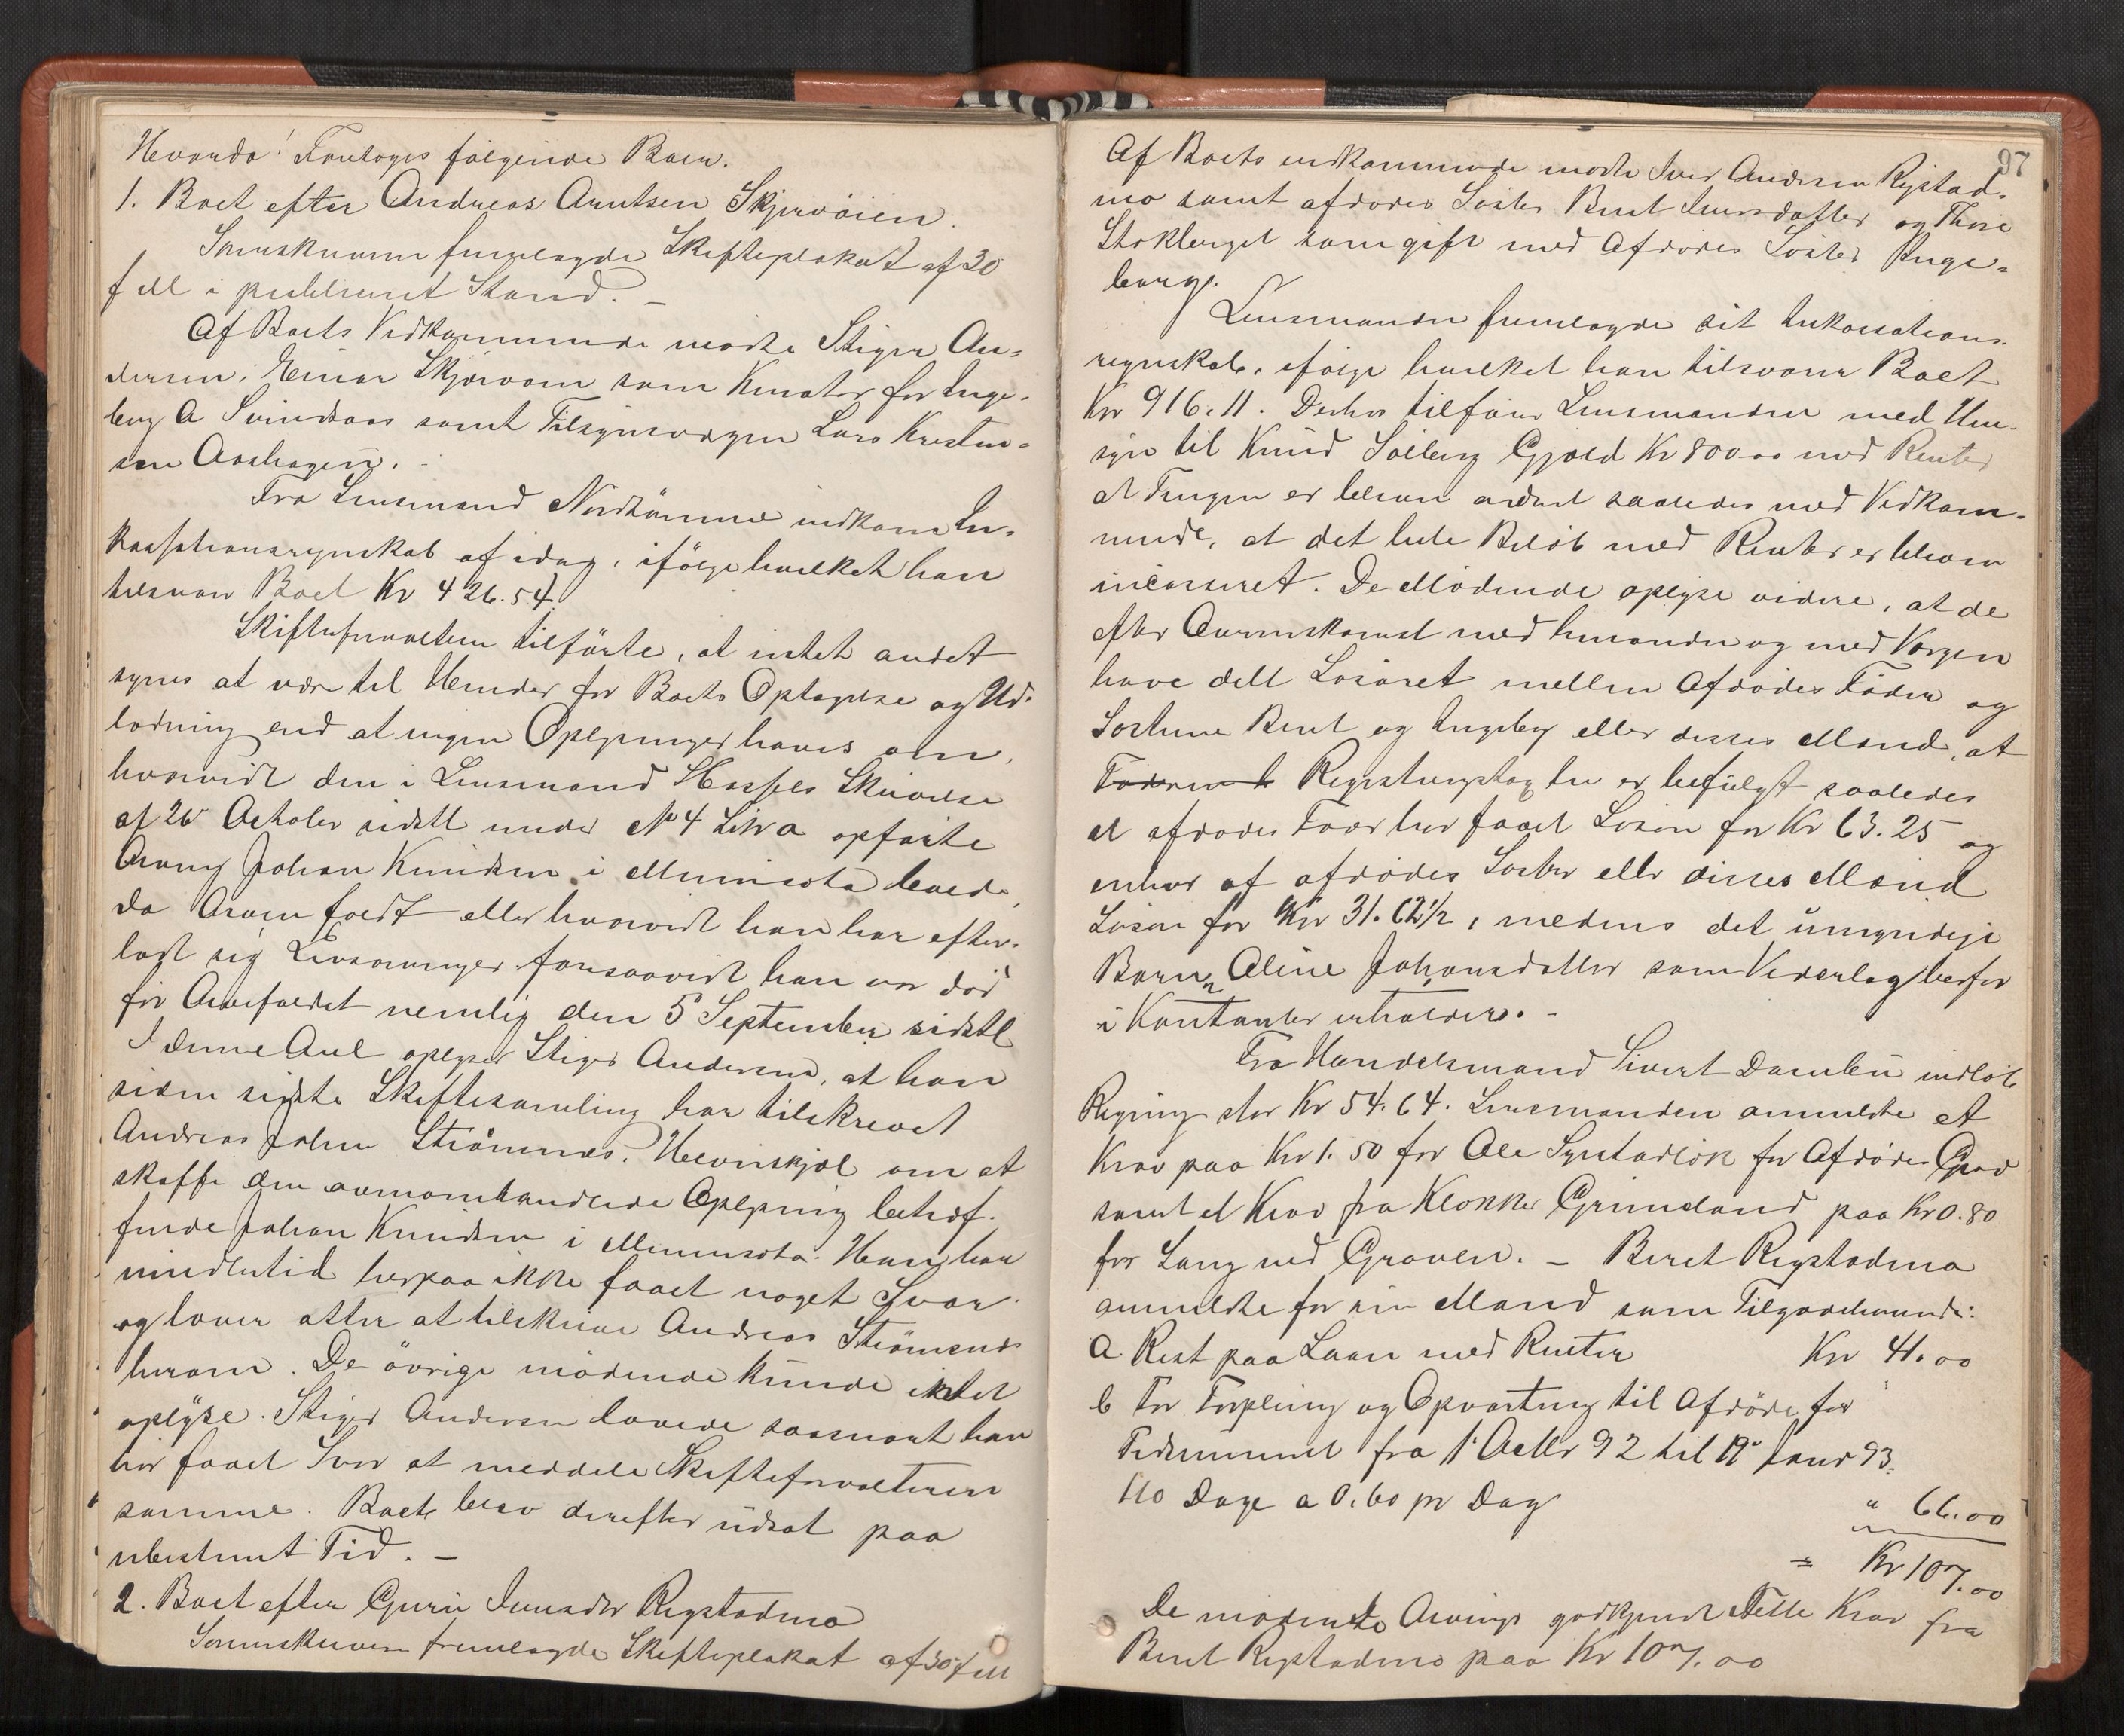 Hvorda! Foretoges følgende Boer.
1. Boet efter Andreas Arntsen Skjærvøien.
Sorenskriveren fremlagde Skifteplakat af 30
f M i publiceret Stand. –
Af Boets Vedkommende mødte Stiger An-
dersen, Einar Skjørvom som Kurator for Inge-
berg A Svindsaas samt Tilsynsværgen Lars Kristen-
sen Aashagen. –
Fra Lensmand Nordtømme indkom In-
kassationsregnskab af idag, ifølge hvilket han
tilsvarer Boet Kr 426.54.
Skifteforvalteren tilførte, at intet andet
synes at være til Hinder for Boets Optagelse og Ud-
lodning end at ingen Oplysninger haves om,
hvorvidt den i Lensmand Hassels Skrivelse
af 26 Oktober sidstl under No 4 Litr a opførte
Arving Johan Knudsen i Minnisota levede,
da Arven faldt eller hvorvidt han har efter-
ladt sig Livsarvinger forsaavidt han var død
før Arvefaldet nemlig den 5 September sidstl
I denne Anl oplyser Stiger Andersen, at han
siden sidste Skiftesamling har tilskrevet
Andreas Johan Strømmes. om at
skaffe den ommeomhandlede Oplysning betræf-
fende Johan Knudsen i Minnisota. Han har
imidlertid herpaa ikke faaet noget Svar
og lover atter at tilskrive Andreas Strømsnes
herom. De øvrige mødende kunde intet
oplyse. Stiger Andersen lovede saasnart han
har faaet Svar at meddele Skifteforvalteren
samme. Boet blev derefter udsat paa
ubestemt Tid. –
2. Boet efter Guru Iversdtr Rygstadmo
Sorenskriveren fremlagde Skifteplakat af 30 f M
97
Af Boets vedkommende mødte Iver Andersen Rystad-
mo samt afdødes Søster Beret Iversdatter og Thore
Stokberget som gift med Afdødes Søster Inge-
borg.
Lensmanden fremlagde sit Inkassations-
regnskab, ifølge hvilket han tilsvarer Boet
Kr 916.11. Derhos tilfører Lensmanden med Hen-
syn til Knud Solberg Gjæld Kr 800.00 med Renter
at Tingen er bleven ordnet saaledes med Vedkom-
mende, at det hele Beløb med Renter er bleven
incasseret. De Mødende oplyse videre, at de
efter Overenskomst med hinanden og med Værgen
have delt Løsøret mellem Afdødes Fader og
Søstrene Beret og Ingeborg eller disses Mænd, at
Registreringstaxten er befulgt saaledes
at afdødes Fader har faaet Løsøre for Kr 63.25 og
enhver af afdødes Søstre eller disses Mænd
Løsøre for Kr 31.62½, medens det umyndige
Barn Aline Johansdatter som Vederlag herfor
i Kontanter erholder. –
Fra Handelsmand Sivert Dambu indløb
Regning stor Kr 54.64. Lensmanden anmeldte et
Krav paa Kr 1.50 for Ole for Afdødes Grav
samt et Krav fra Klokker Grimeland paa Kr 0.80
for Sang ved Graven. – Beret Rystadmo
anmeldte for sin Mand som Tilgodehavende:
a. Rest paa Laan med Renter Kr 41.00
b For Forpleining og Opvartning til Afdøde for
Tidsrummet fra 1' Octbr 92 til 19' Janr 93.
110 Dage a 0.60 pr Dag " 66.00
= Kr 107.00
De mødende Arvinger godkjendte dette Krav fra
Beret Rystadmo paa Kr 107.00